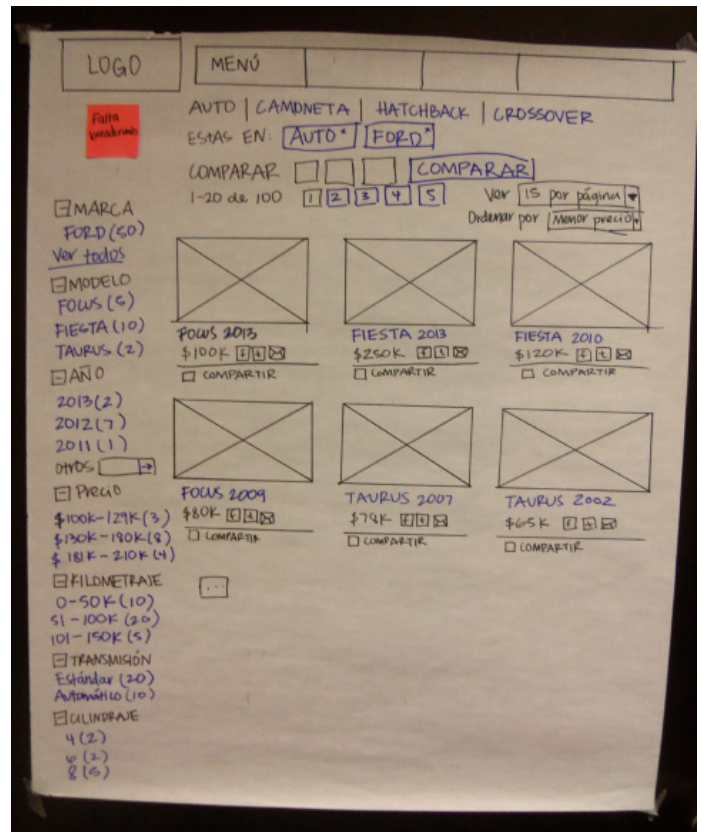 LOGO
MENÚ
Falta
breadcrumb
AUTO | CAMIONETA | HATCHBACK | CROSSOVER
ESTAS EN: AUTO* FORD*
COMPARAR COMPARAR
1-20 de 100 1 2 3 4 5
Ver 15 por página
Ordenar por Menor precio
MARCA
FORD (50)
Ver todos
MODELO
FOCUS (5)
FIESTA (10)
TAURUS (2)
AÑO
2013 (2)
2012 (7)
2011 (1)
otros
Precio
$100K-129K (3)
$130K-180K (8)
$181K-210K (4)
KILOMETRAJE
0-50K (10)
51-100K (20)
101-150K (5)
TRANSMISIÓN
Estándar (20)
Automático (10)
CILINDRAJE
4 (2)
6 (2)
8 (5)
FOCUS 2013
$100K f t
COMPARTIR
FIESTA 2013
$250K f t
COMPARTIR
FIESTA 2010
$120K f t
COMPARTIR
FOCUS 2009
$80K f t
COMPARTIR
TAURUS 2007
$78K f t
COMPARTIR
TAURUS 2002
$65K f t
COMPARTIR
...